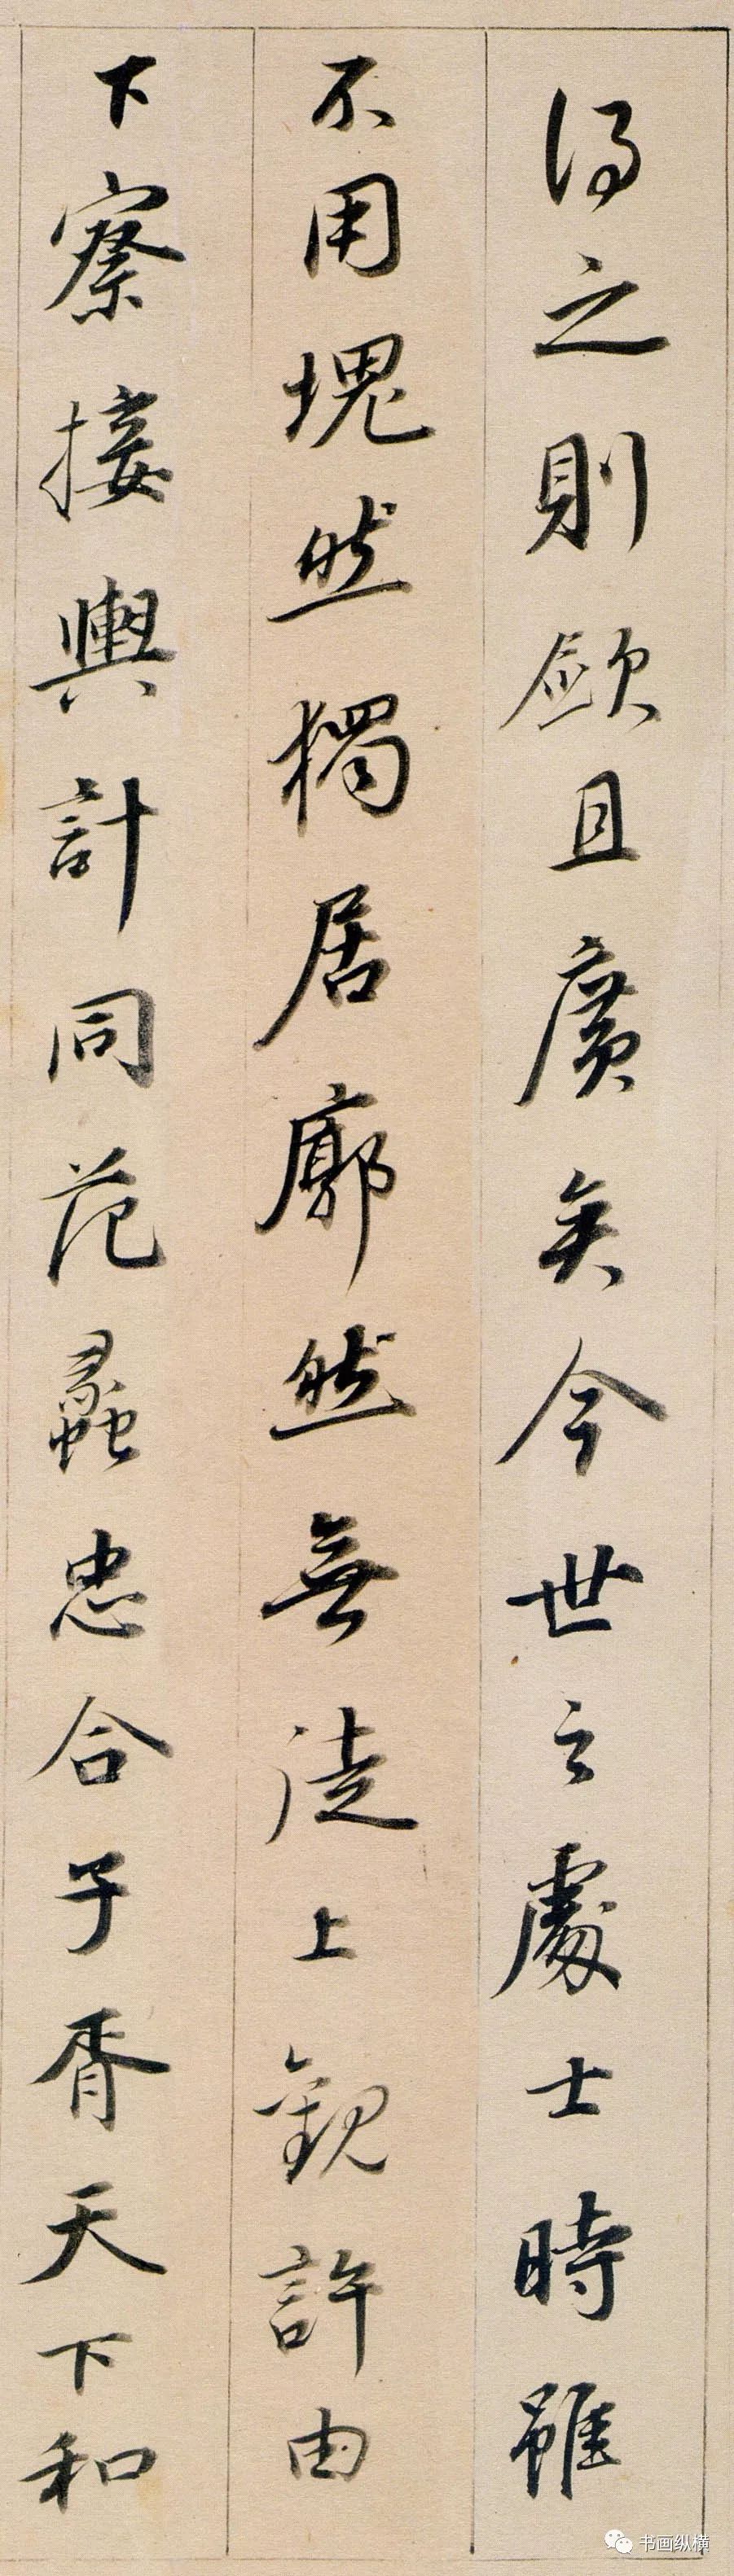 得之則敏且廣矣今世之處士時雖
不用塊然獨居廓然無徒上觀許由
下察接輿計同范蠡忠合子胥天下和
书画纵横